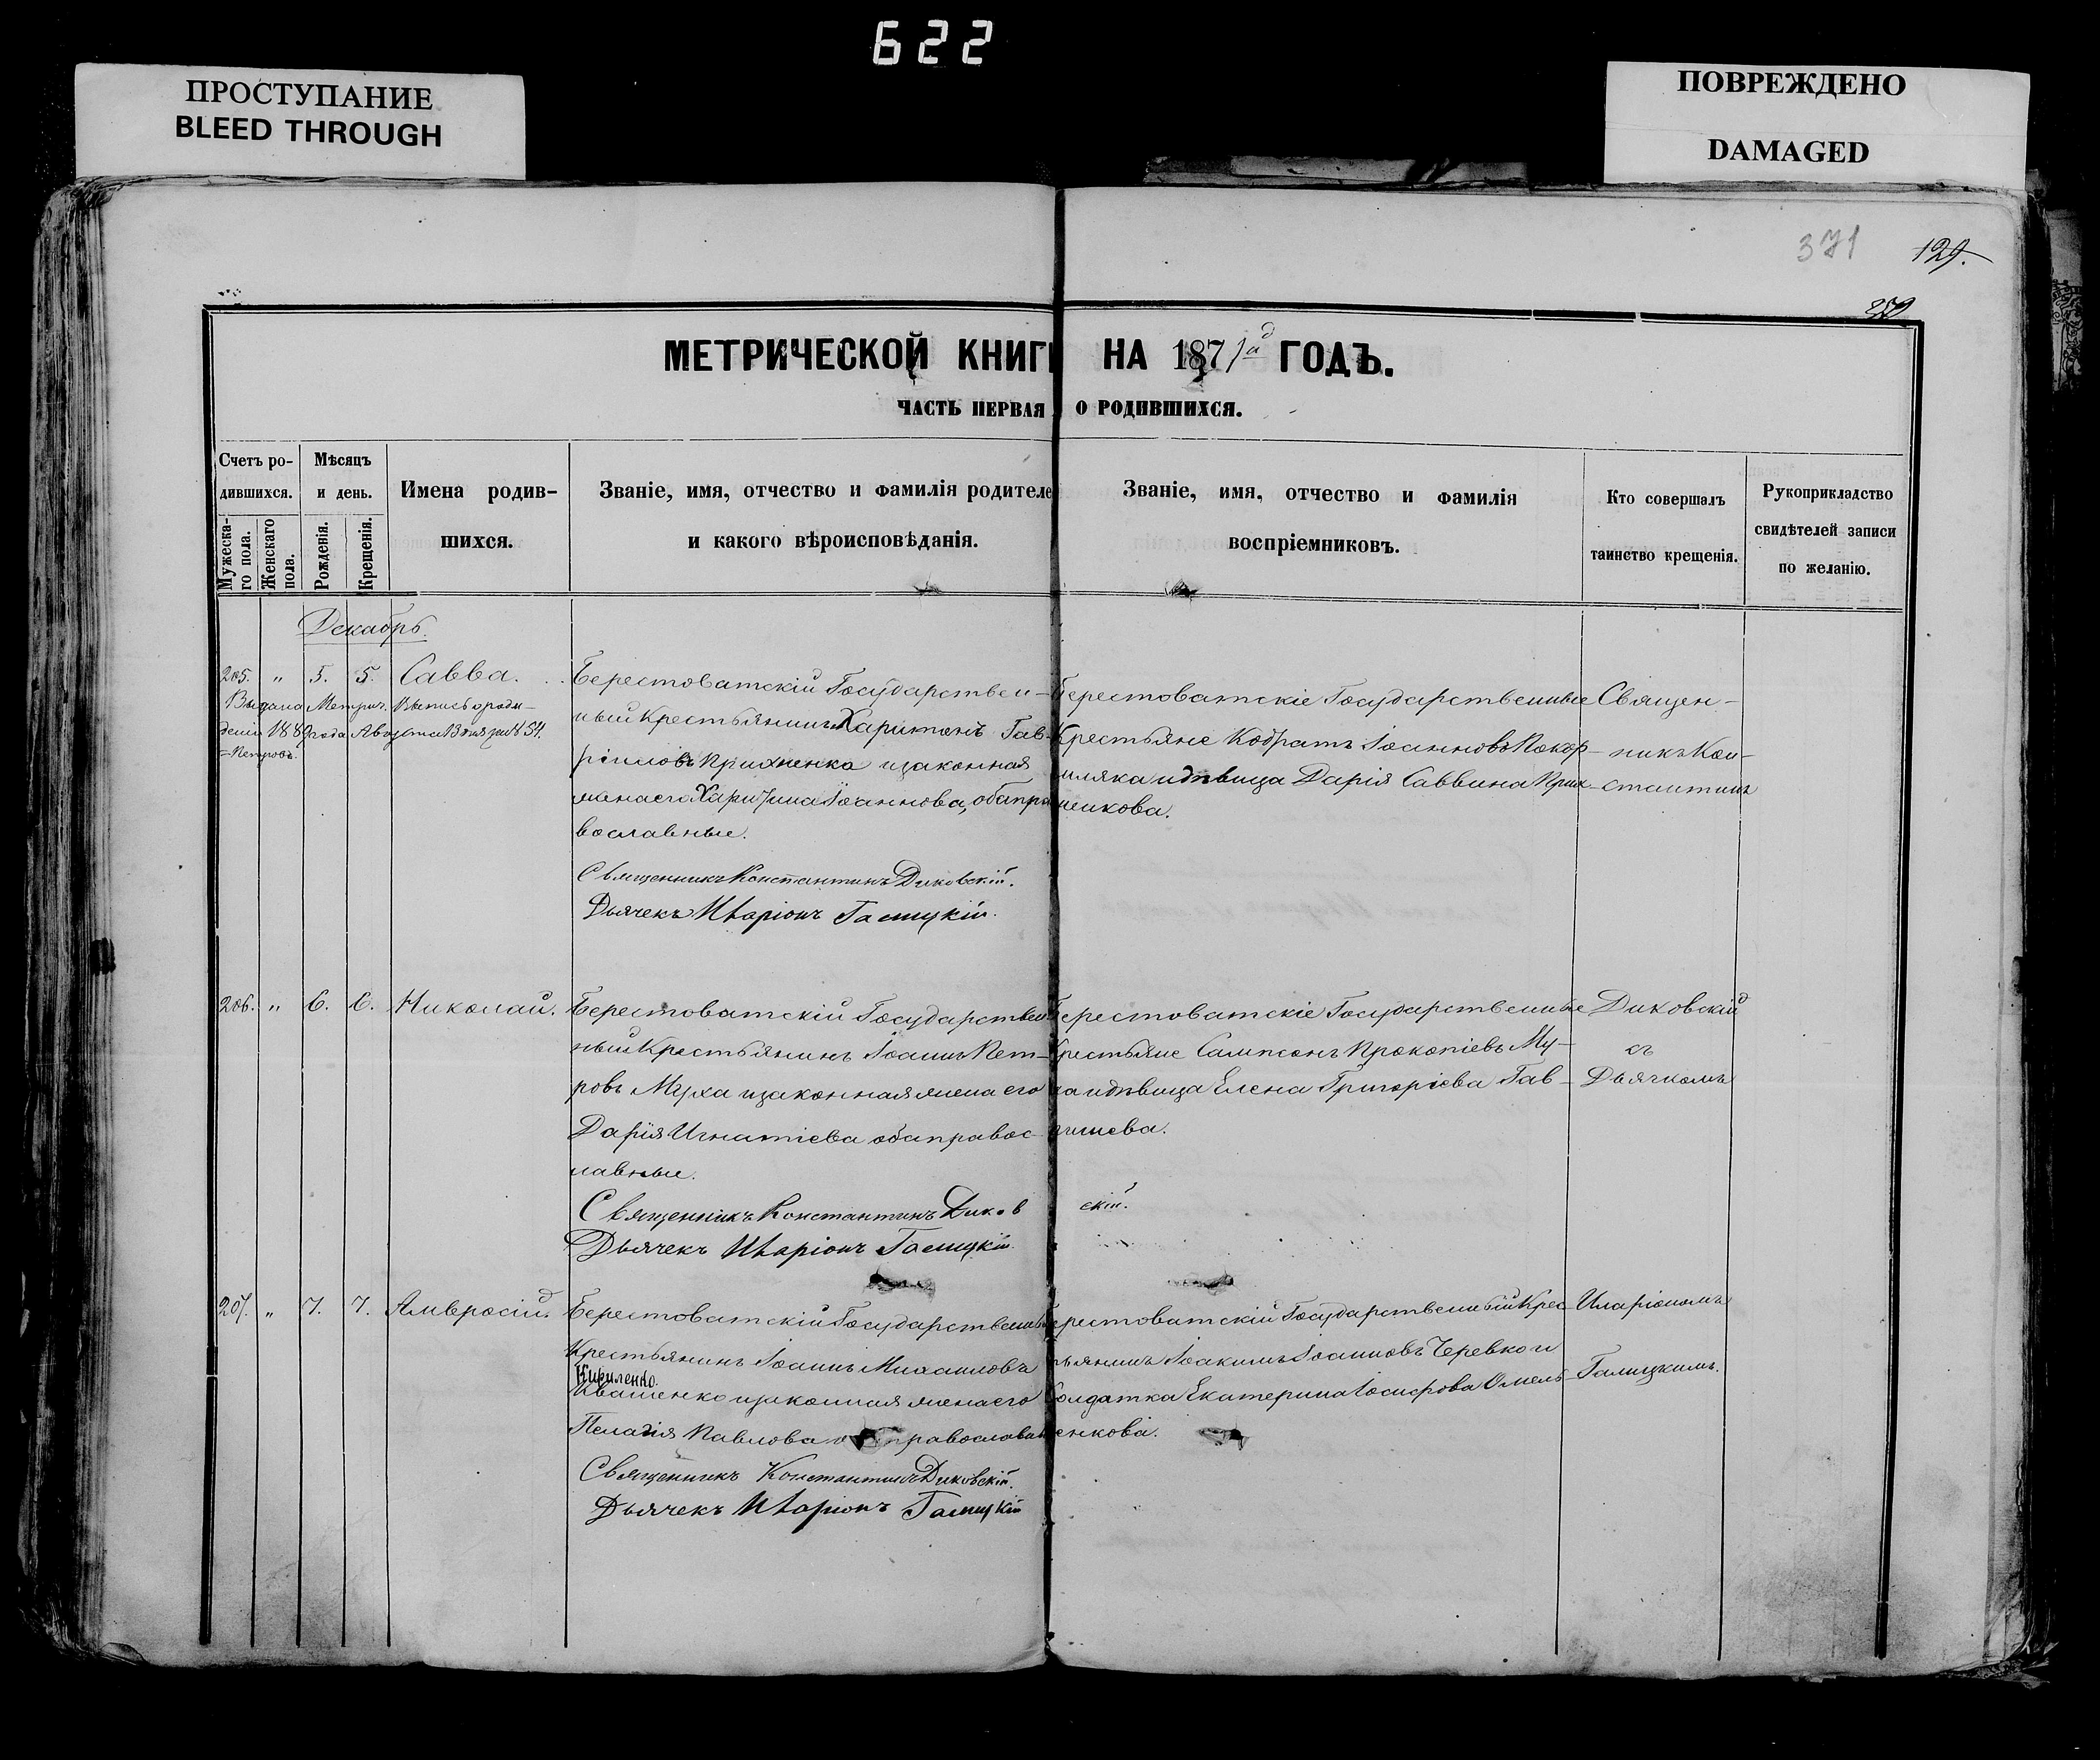 622
ПРОСТУПАНИЕ
BLEED THROUGH
ПОВРЕЖДЕНО
DAMAGED
371
129.
259
МЕТРИЧЕСКОЙ КНИГИ НА 1871 ГОДЪ.
ЧАСТЬ ПЕРВАЯ О РОДИВШИХСЯ.
Счетъ ро-
дившихся.
Мужеска-
го пола.
Женскаго
пола.
Мѣсяцъ
и день.
Рожденія.
Крещенія.
Имена родив-
шихся.
Званіе, имя, отчество и фамилія родителе
и какого вѣроисповѣданія.
Званіе, имя, отчество и фамилія
воспріемниковъ.
Кто совершалъ
таинство крещенія.
Рукоприкладство
свидѣтелей записи
по желанію.
Декабрь.
205. " 5. 5. Савва.
Выдана Метрич. Выпись о рож-
деніи 1889 года Августа 13 дня за № 54.
Берестоватскій Государствен-
ный Крестьянинъ Харитонъ Гав-
ріиловъ Прихненко и законная
жена его Харитина Іоаннова, оба пра
вославные.
Священникъ Константинъ Диковскій.
Дьячекъ Иларіонъ Галицкій.
Берестоватскіе Государственные
Крестьяне Кодратъ Іоанновъ Покор-
миляка и дѣвица Дарія Саввина Прих-
ненкова.
Священ-
никъ Кон-
стантинъ
206. " 6. 6. Николай.
Берестоватскій Государствен
ный Крестьянинъ Іоаннъ Пет-
ровъ Муха и законная жена его
Дарія Игнатіева оба правос-
лавные.
Священникъ Константинъ Диков скій.
Дьячекъ Иларіонъ Галицкій.
Берестоватскіе Государственные
Крестьяне Сампсонъ Прокопіевъ Му-
ха и дѣвица Елена Григоріева Гав-
ришева.
Диковскій
съ
Дьячкомъ
207. " 7. 7. Амвросій.
Берестоватскій Государственный
Крестьянинъ Іоаннъ Михаиловъ
Кириленко.
Квашенко и законная жена его
Пелагія Павлова православн
Священникъ Константинъ Диковскій.
Дьячекъ Иларіонъ Галицкій
Берестоватскій Государственный Крес-
тьянинъ Іоакимъ Іоанновъ Черевко и
Солдатка Екатерина Іосифова Омель-
ченкова.
Иларіономъ
Галицкимъ.